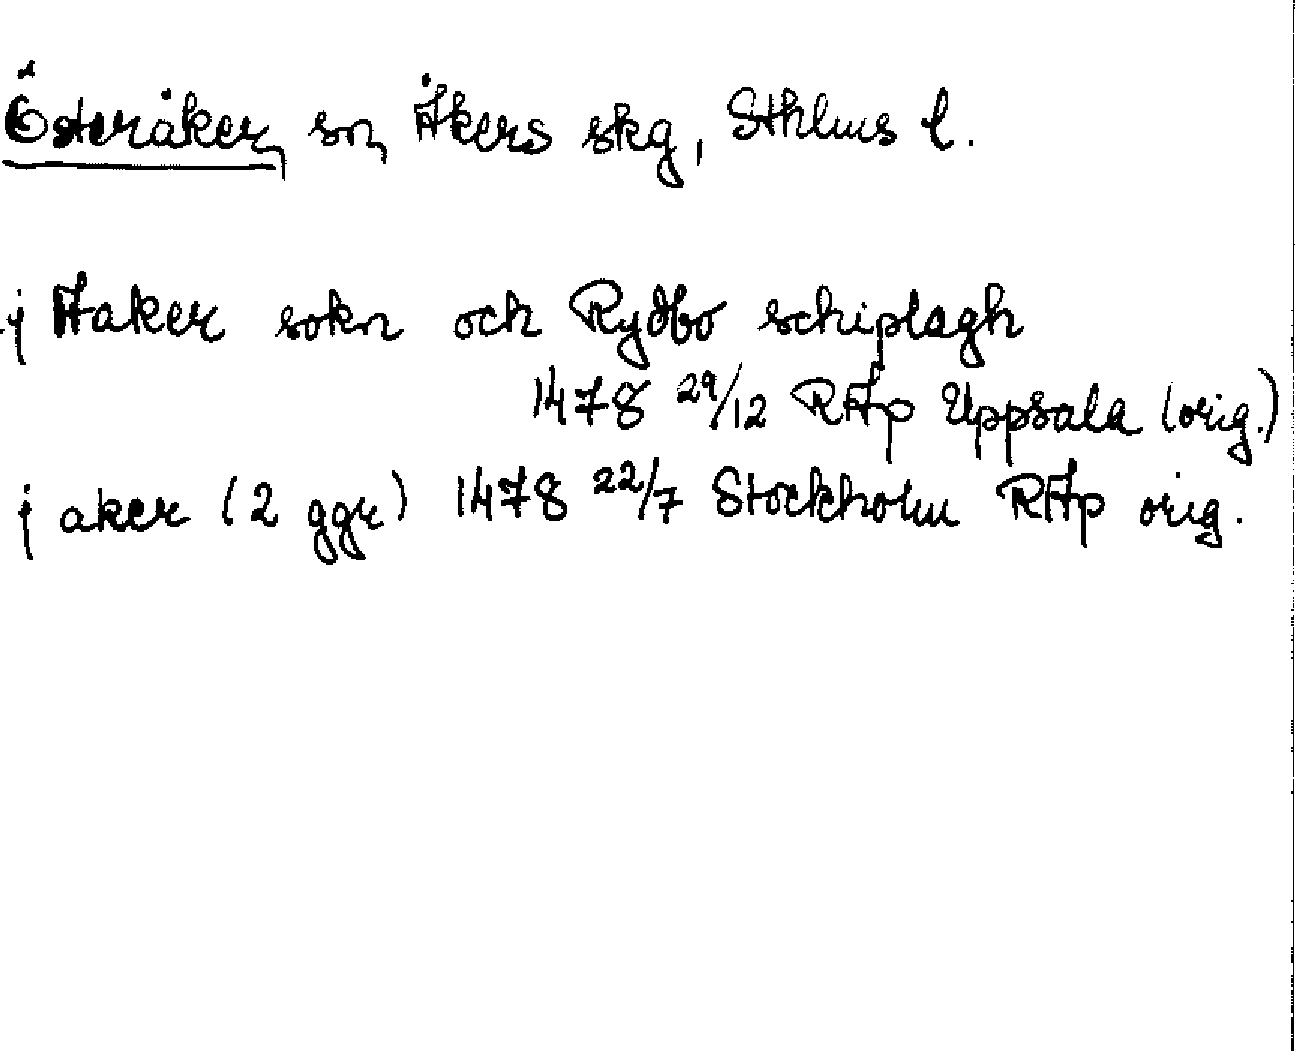 Österåker, sn, Åkers skg, Sthlms l.
j Aaker sokn och Rydbo schiplagh
1478 29/12 RAp Uppsala (orig.)
j aker (2 ggr) 1478 22/7 Stockholm RAp orig.